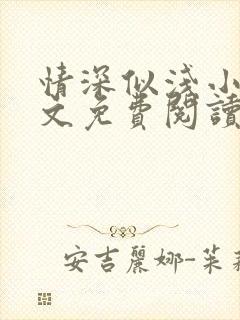 情深似淺小
文免費閱讀
安吉麗娜-茱